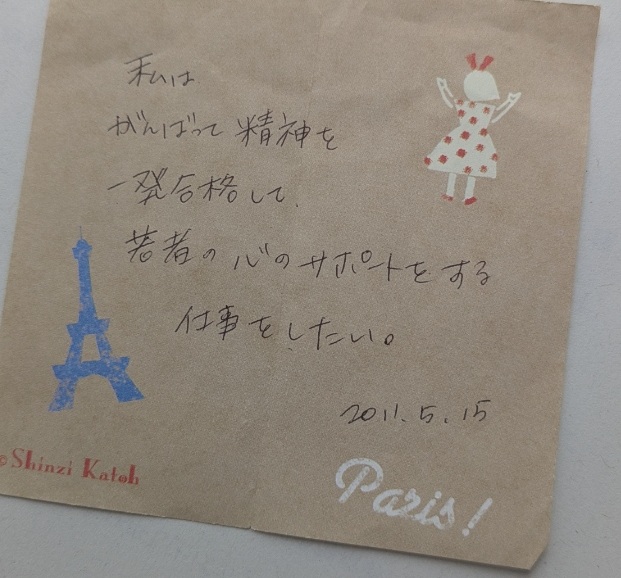 私は
がんばって精神を
一発合格して、
若者の心のサポートをする
仕事をしたい。
2011.5.15
©Shinzi Katoh
Paris!